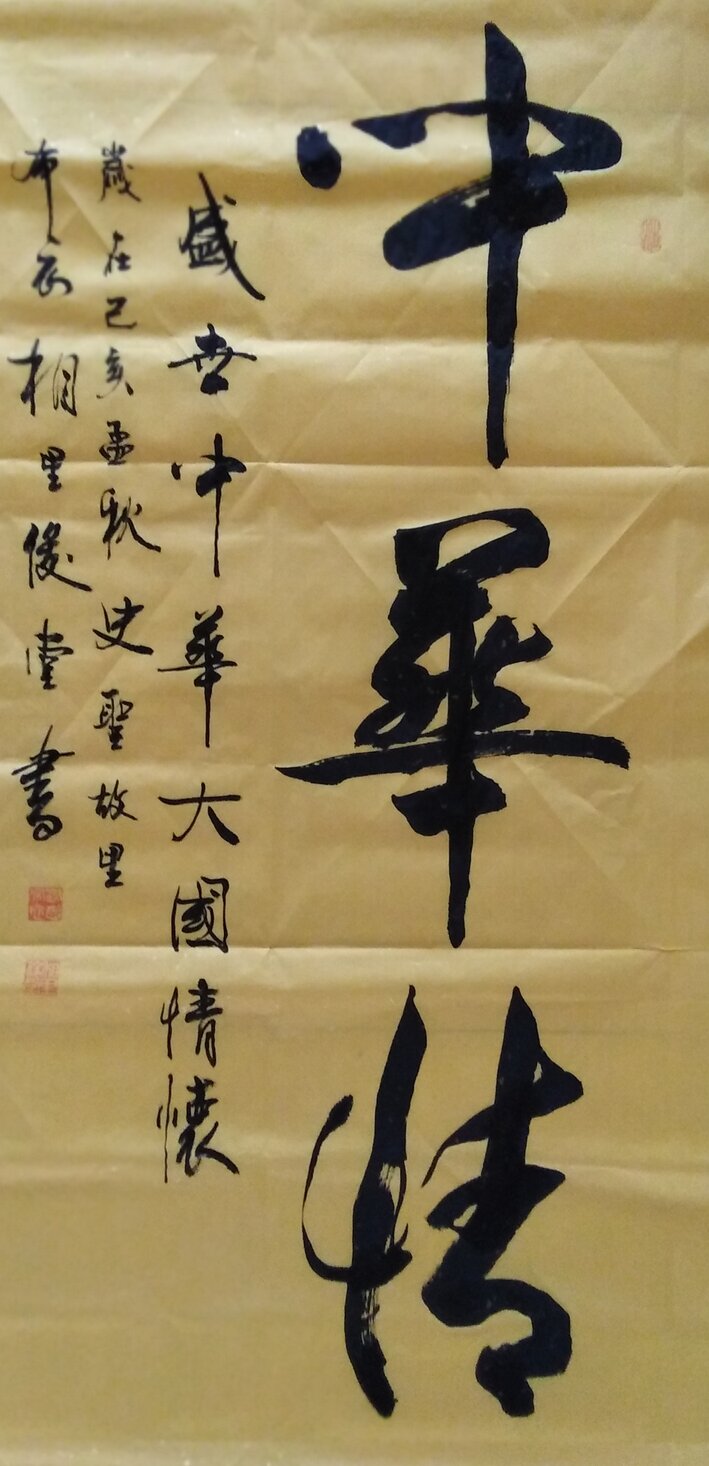 中華情
盛世中華大國情懷
歲在己亥孟秋史聖故里
布衣相里俊堂書